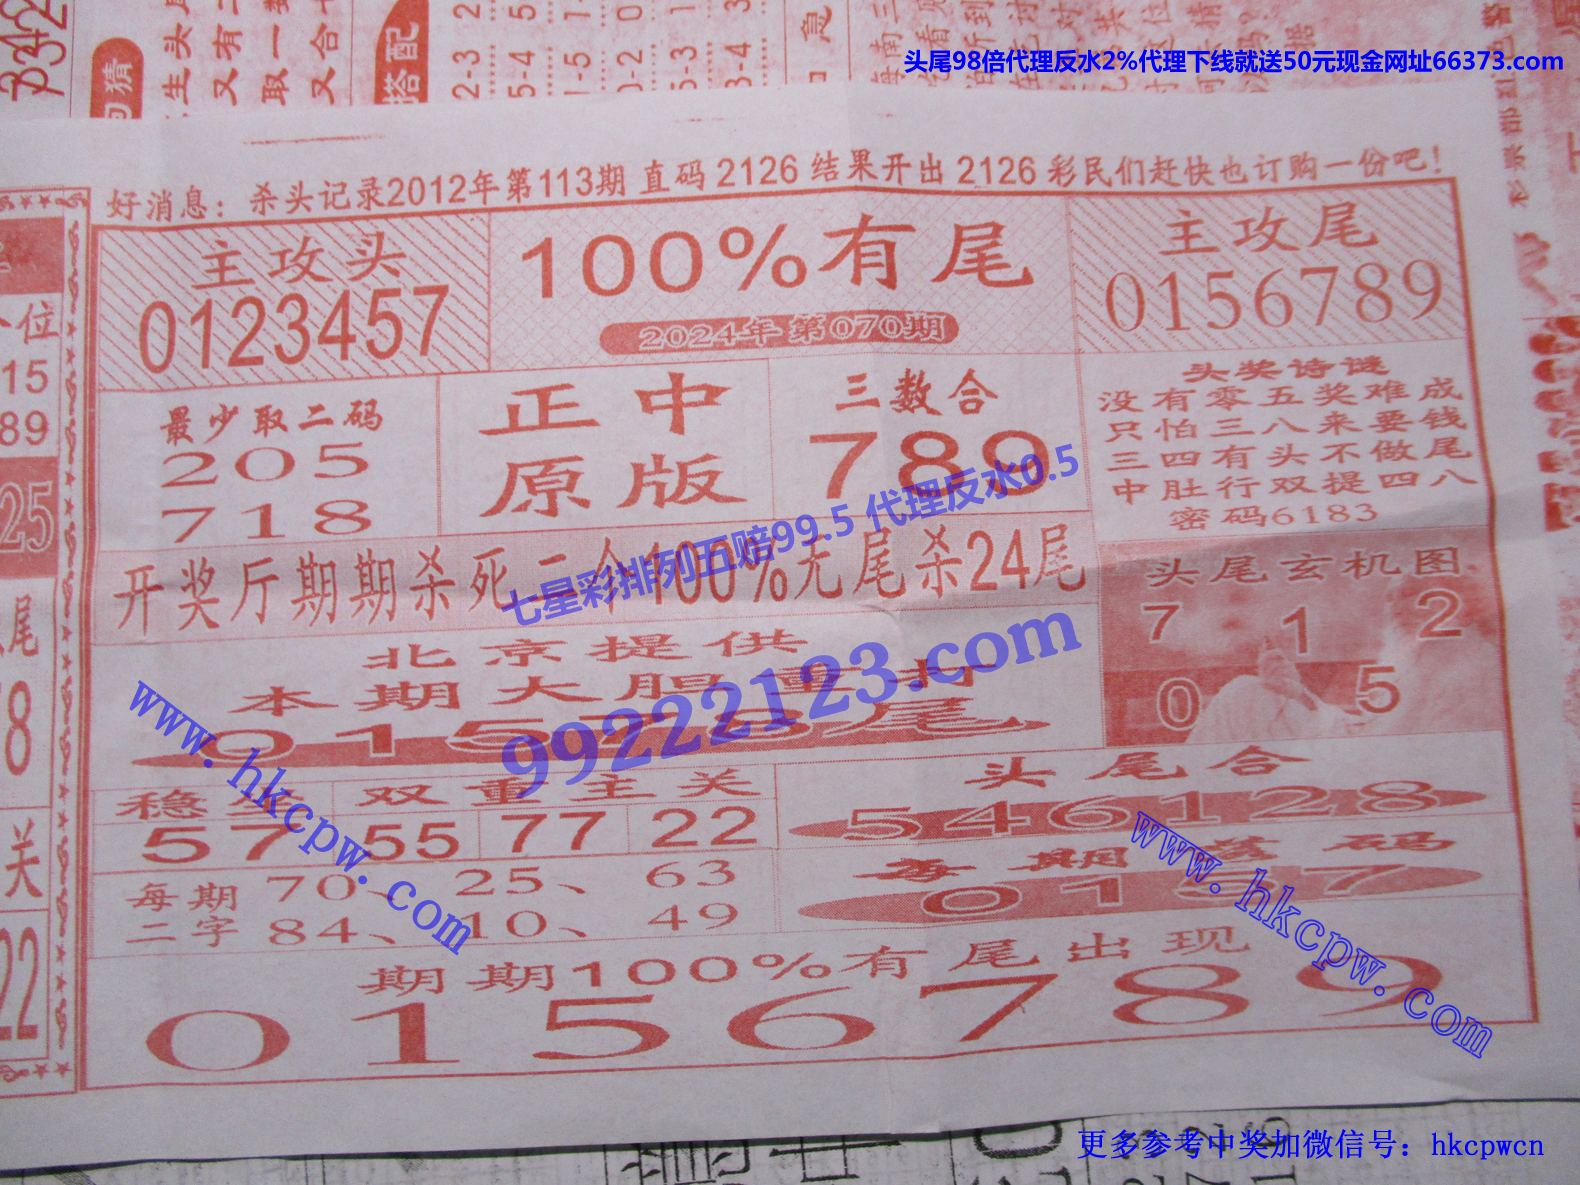 头尾98倍代理反水2%代理下线就送50元现金网址66373.com
好消息：杀头记录2012年第113期 直码 2126 结果开出 2126 彩民们赶快也订购一份吧！
主攻头
0123457
100%有尾
2024年 第070期
主攻尾
0156789
最少取二码
205
718
正中
原版
三数合
789
头奖诗谜
没有零五奖难成
只怕三八来要钱
三四有头不做尾
中肚行双提四八
密码6183
开奖厅期期杀死二个100%无尾杀24尾
七星彩排列五赔99.5 代理反水0.5
99222123.com
头尾玄机图
7 1 2
0 5
北京提供
本期大胆重打
尾
www.hkcpw.com
双重主关
57
55 77 22
头尾合
546128
每期
码
每期
二字
70、25、63
84、10、49
www.hkcpw.com
期期100%有尾出现
0156789
位
15
89
25
尾
8
关
22
更多参考中奖加微信号：hkcpwcn